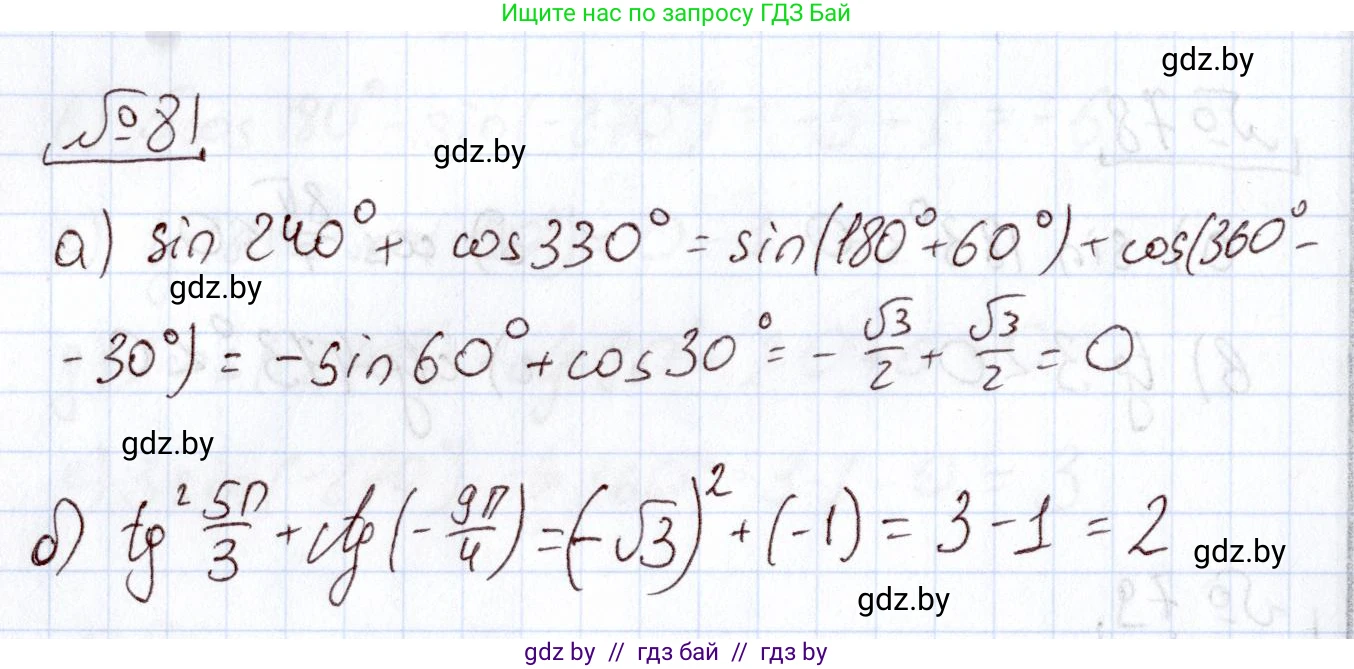 Ищите нас по запросу ГДЗ Бай
gdz.by
№81
gdz.by
а) sin 240° + cos 330° = sin(180° + 60°) + cos(360° -
gdz.by
- 30°) = - sin 60° + cos 30° = - √3/2 + √3/2 = 0
gdz.by
б) tg² 5π/3 + ctg(- 9π/4) = (- √3)² + (-1) = 3 - 1 = 2
gdz.by
gdz.by
gdz by // гдз бай // гдз by